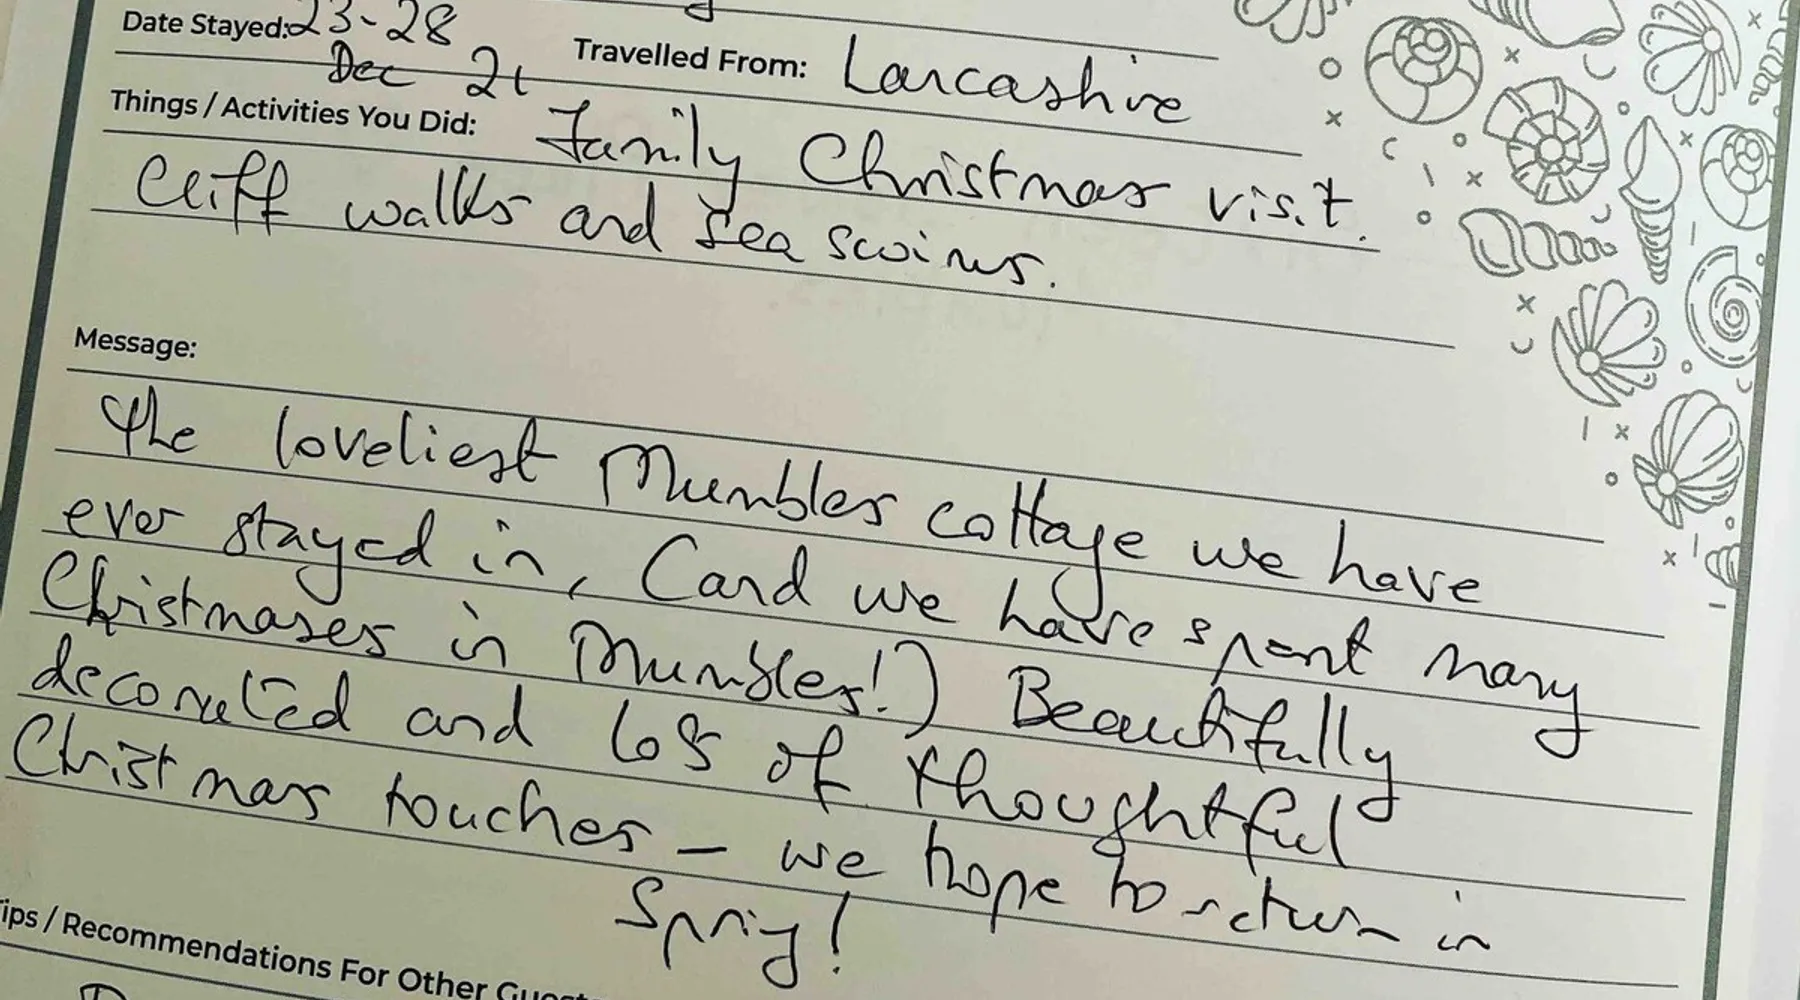 Date Stayed: 23-28
Dec 21
Travelled From: Lancashire
Things / Activities You Did: Family Christmas visit.
Cliff walks and sea swims.
Message:
The loveliest Mumbles cottage we have
ever stayed in, (and we have spent many
Christmases in Mumbles!) Beautifully
decorated and lots of thoughtful
Christmas touches - we hope to return in
Spring!
Tips / Recommendations For Other